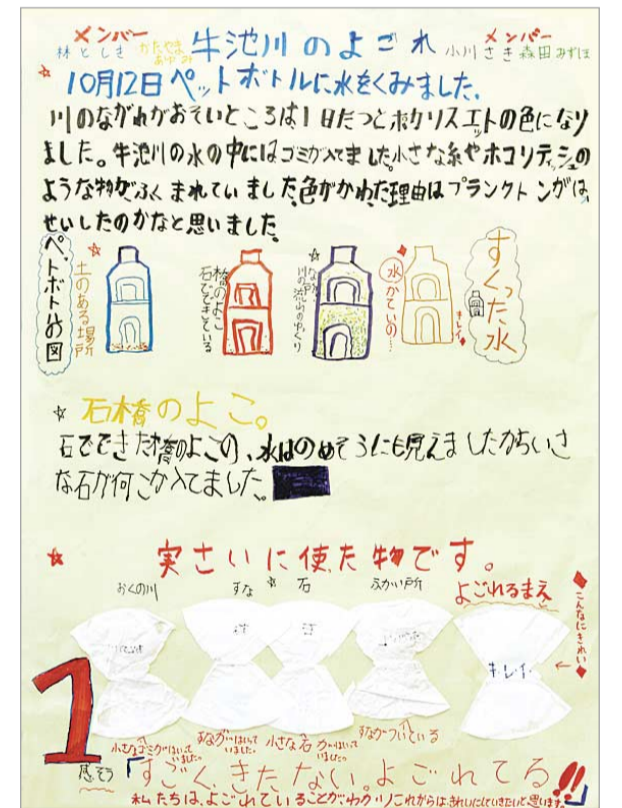 メンバー
林としき
かたやま
あゆみ
牛池川のよごれ
メンバー
小川さき 森田みずほ
10月12日ペットボトルに水をくみました.
川のながれがおそいところは1日たつとポカリスエットの色になり
ました。牛池川の水の中にはゴミが入てました小さな糸やホコリティッシュの
ような物がふくまれていました。色がかわた理由はプランクトンがはっ
せいしたのかなと思いました。
ペットボトルの図
土のある場所
橋のよこ
石でできている
川の流れのゆっくり
水
キレイ
すくった水
石橋のよこ。
石でできた橋のよこの、水はのめそうにも見えましたがちいさ
な石が何こか入てました。
実さいに使た物です。
おくの川
すな
石
ふかい所
よごれるまえ
こんなにきれい
キレイ
1
小さなゴミがはいっていました。
すながはいっていました。
小さな石がはいっていました。
すながついている
感そう
「すごく、きたない。よごれてる!!」
私たちは、よごれていることがわかりこれからはきれいにしていきたいと思います。